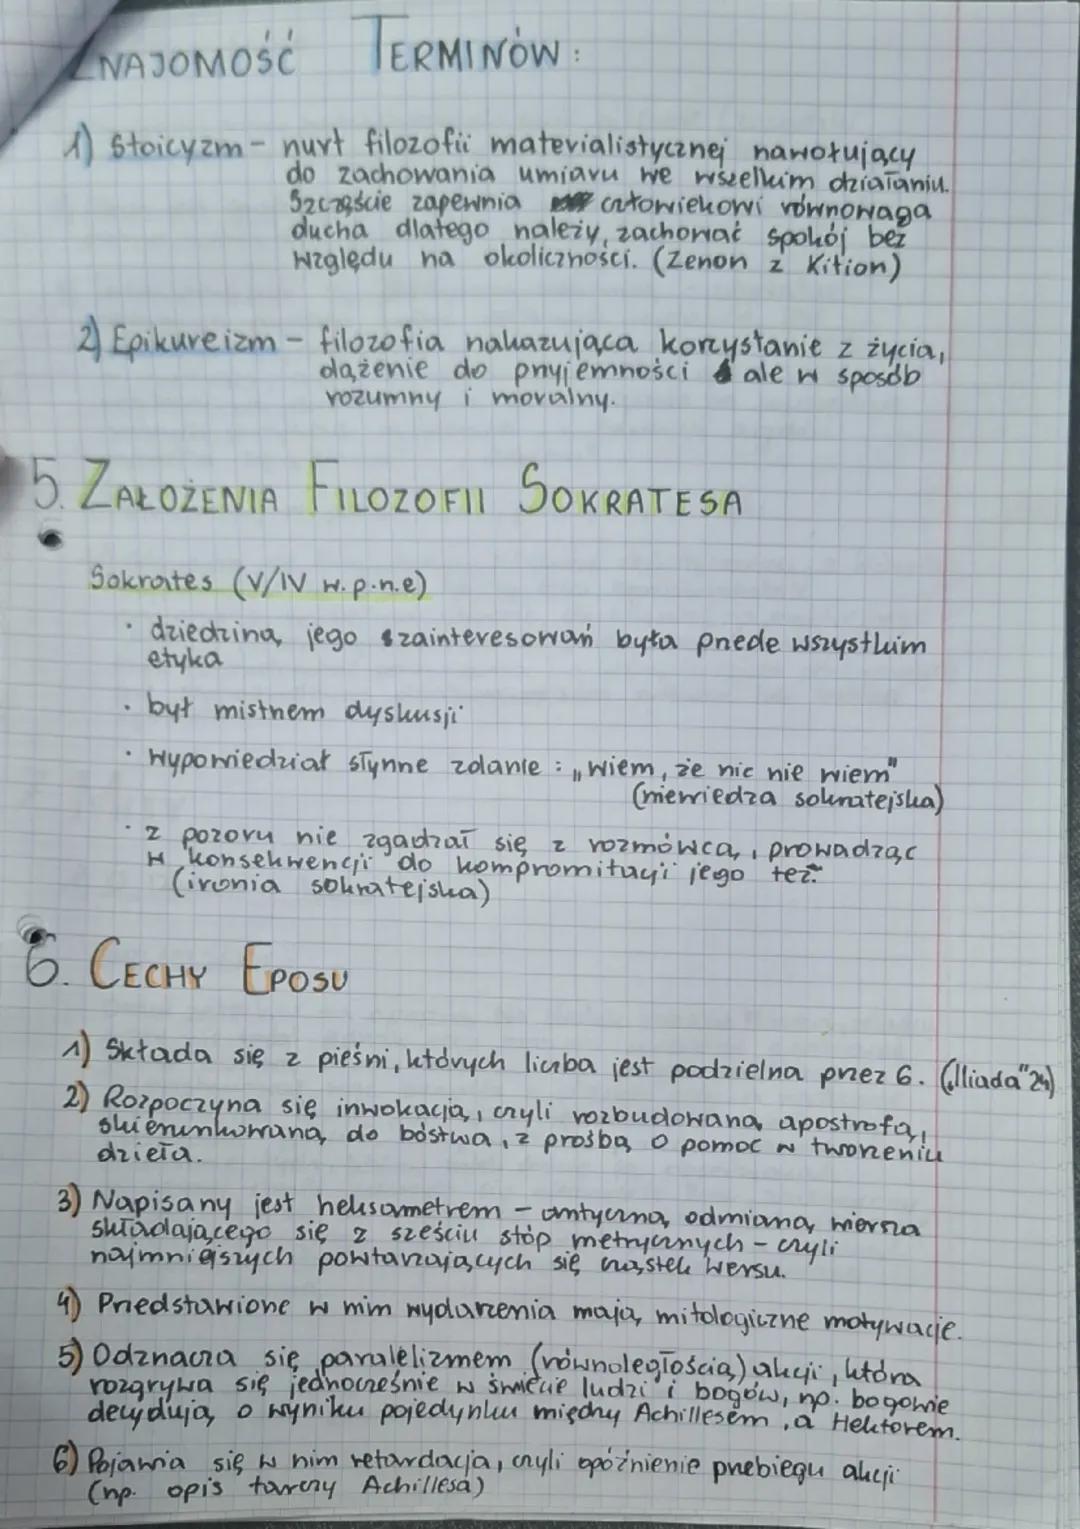 ZNAJOMOŚĆ TERMINÓW:
1) Stoicyzm - nurt filozofii materialistycznej nawołujący
do zachowania umiaru we wszelkim działaniu.
Szczęście zapewnia człowiekowi równowaga
ducha dlatego należy, zachować spokój bez
względu na okoliczności. (Zenon z Kition)
2) Epikureizm - filozofia nakazująca korzystanie z życia,
dążenie do przyjemności ale w sposób
rozumny i moralny.
5. ZAŁOŻENIA FILOZOFII SOKRATESA
Sokrates (V/IV w.p.n.e)
· dziedziną jego zainteresowań była przede wszystkim
etyka
· był mistrzem dyskusji
· wypowiedział słynne zdanie: „wiem, że nic nie wiem"
(niewiedza sokratejska)
· z pozoru nie zgadzał się z rozmówcą, prowadząc
w konsekwencji do kompromitacji jego tez.
(ironia sokratejska)
6. CECHY EPOSU
1) Składa się z pieśni, których liczba jest podzielna przez 6. („Iliada" 24)
2) Rozpoczyna się inwokacją, czyli rozbudowaną apostrofą,
skierunkowaną do bóstwa, z prośbą o pomoc w tworzeniu
dzieła.
3) Napisany jest heksametrem - antyczną odmianą wiersza
składającego się z sześciu stóp metrycznych - czyli
najmniejszych powtarzających się cząstek wersu.
4) Przedstawione w nim wydarzenia mają mitologiczne motywacje.
5) Odznacza się paralelizmem (równoległością) akcji, która
rozgrywa się jednocześnie w świecie ludzi i bogów, np. bogowie
decydują o wyniku pojedynku między Achillesem, a Hektorem.
6) Pojawia się w nim retardacja, czyli opóźnienie przebiegu akcji
(np. opis tarczy Achillesa)